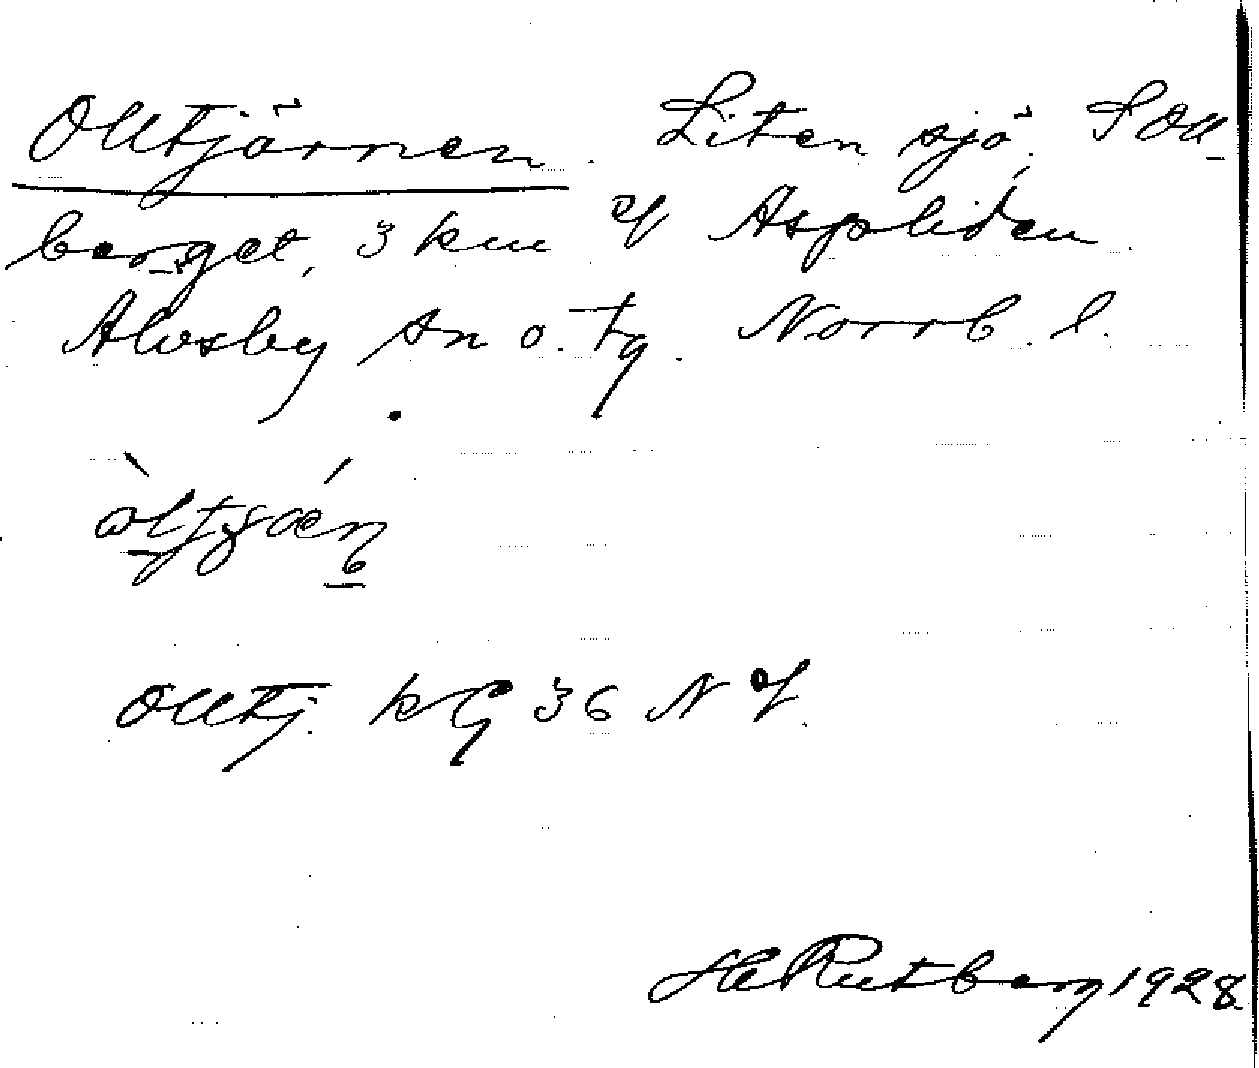 Olltjärnen. Liten sjö, S Oll-
berget, 3 km V Aspliden
Älvsby sn o. tg. Norrb. l.
Olltj. kG 36 NV.
H Rutberg 1928